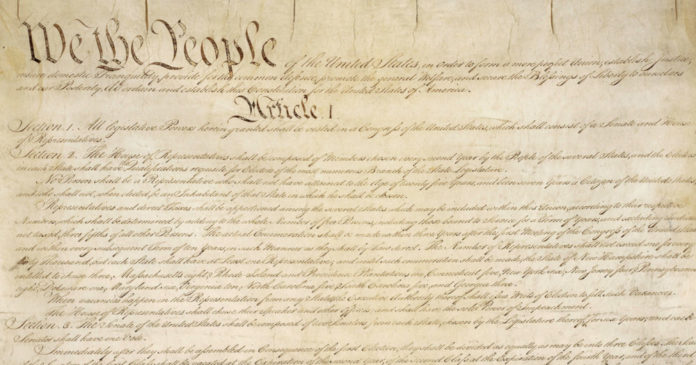 We the People of the United States, in Order to form a more perfect Union, establish Justice,
insure domestic Tranquility, provide for the common defence, promote the general Welfare, and secure the Blessings of Liberty to ourselves
and our Posterity, do ordain and establish this Constitution for the United States of America.
Article. I.
Section. 1. All legislative Powers herein granted shall be vested in a Congress of the United States, which shall consist of a Senate and House
of Representatives.
Section. 2. The House of Representatives shall be composed of Members chosen every second Year by the People of the several States, and the Electors
in each State shall have Qualifications requisite for Electors of the most numerous Branch of the State Legislature.
No Person shall be a Representative who shall not have attained to the Age of twenty five Years, and been seven Years a Citizen of the United States,
and who shall not, when elected, be an Inhabitant of that State in which he shall be chosen.
Representatives and direct Taxes shall be apportioned among the several States which may be included within this Union, according to their respective
Numbers, which shall be determined by adding to the whole Number of free Persons, including those bound to Service for a Term of Years, and excluding Indians
not taxed, three fifths of all other Persons. The actual Enumeration shall be made within three Years after the first Meeting of the Congress of the United States,
and within every subsequent Term of ten Years, in such Manner as they shall by Law direct. The Number of Representatives shall not exceed one for every
thirty Thousand, but each State shall have at Least one Representative; and until such enumeration shall be made, the State of New Hampshire shall be
entitled to chuse three, Massachusetts eight, Rhode-Island and Providence Plantations one, Connecticut five, New-York six, New Jersey four, Pennsylvania
eight, Delaware one, Maryland six, Virginia ten, North Carolina five, South Carolina five, and Georgia three.
When vacancies happen in the Representation from any State, the Executive Authority thereof shall issue Writs of Election to fill such Vacancies.
The House of Representatives shall chuse their Speaker and other Officers; and shall have the sole Power of Impeachment.
Section. 3. The Senate of the United States shall be composed of two Senators from each State, chosen by the Legislature thereof, for six Years; and each
Senator shall have one Vote.
Immediately after they shall be assembled in Consequence of the first Election, they shall be divided as equally as may be into three Classes. The Seats